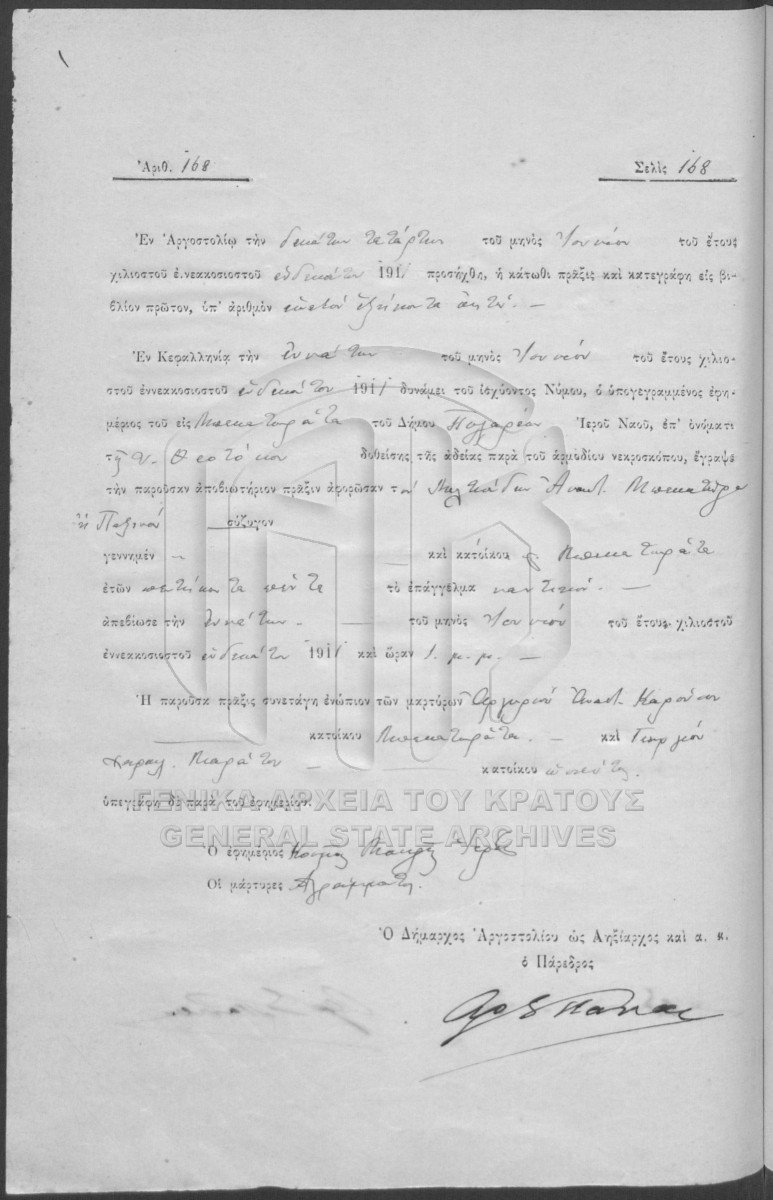 Ἀριθ. 168 Σελὶς 168
Ἐν Ἀργοστολίῳ τὴν δεκάτην τετάρτην τοῦ μηνὸς Ἰουνίου τοῦ ἔτους
χιλιοστοῦ ἐννεακοσιοστοῦ ἑνδεκάτου 1911 προσήχθη, ἡ κάτωθι πρᾶξις καὶ κατεγράφη εἰς βι-
βλίον πρῶτον, ὑπ' ἀριθμὸν ἑκατὸν ἑξήκοντα ὀκτώ. —
Ἐν Κεφαλληνίᾳ τὴν ἐννάτην τοῦ μηνὸς Ἰουνίου τοῦ ἔτους χιλιο-
στοῦ ἐννεκκοσιοστοῦ ἑνδεκάτου 1911 δυνάμει τοῦ ἰσχύοντος Νόμου, ὁ ὑπογεγραμμένος ἐφη-
μέριος τοῦ εἰς Μπεκατωράτα τοῦ Δήμου Πυλαρέων Ἱεροῦ Ναοῦ, ἐπ' ὀνόματι
τῆς Ὑ. Θεοτόκου δοθείσης τῆς ἀδείας παρὰ τοῦ ἁρμοδίου νεκροσκόπου, ἔγραψε
τὴν παροῦσαν ἀποβιωτήριον πρᾶξιν ἀφορῶσαν τὸν Μιλτιάδην Ἀναστ. Μπεκατῶρο
σύζυγον
γεννημέν — καὶ κατοίκου Μπεκατωράτα
ἐτῶν πεντήκοντα πέντε τὸ ἐπάγγελμα ναυτικοῦ. —
ἀπεβίωσε τὴν ἐννάτην — τοῦ μηνὸς Ἰουνίου τοῦ ἔτους χιλιοστοῦ
ἐννεκκοσιοστοῦ ἑνδεκάτου 1911 καὶ ὥραν 1. μ. μ. —
Ἡ παροῦσα πρᾶξις συνετάγη ἐνώπιον τῶν μαρτύρων Ἀργυρίου Ἀναστ. Καρούσου
κατοίκου Μπεκατωράτα. — καὶ Γεωργίου
Χαραλ. Μαράτου — κατοίκου
ὑπεγράφη δὲ παρὰ τοῦ ἐφημερίου.
ΓΕΝΙΚΑ ΑΡΧΕΙΑ ΤΟΥ ΚΡΑΤΟΥΣ
GENERAL STATE ARCHIVES
Ὁ ἐφημέριος Κοσμᾶς Μακρῆς Ἱερεύς
Οἱ μάρτυρες Ἀγράμματοι.
Ὁ Δήμαρχος Ἀργοστολίου ὡς Ληξίαρχος καὶ α. α.
ὁ Πάρεδρος